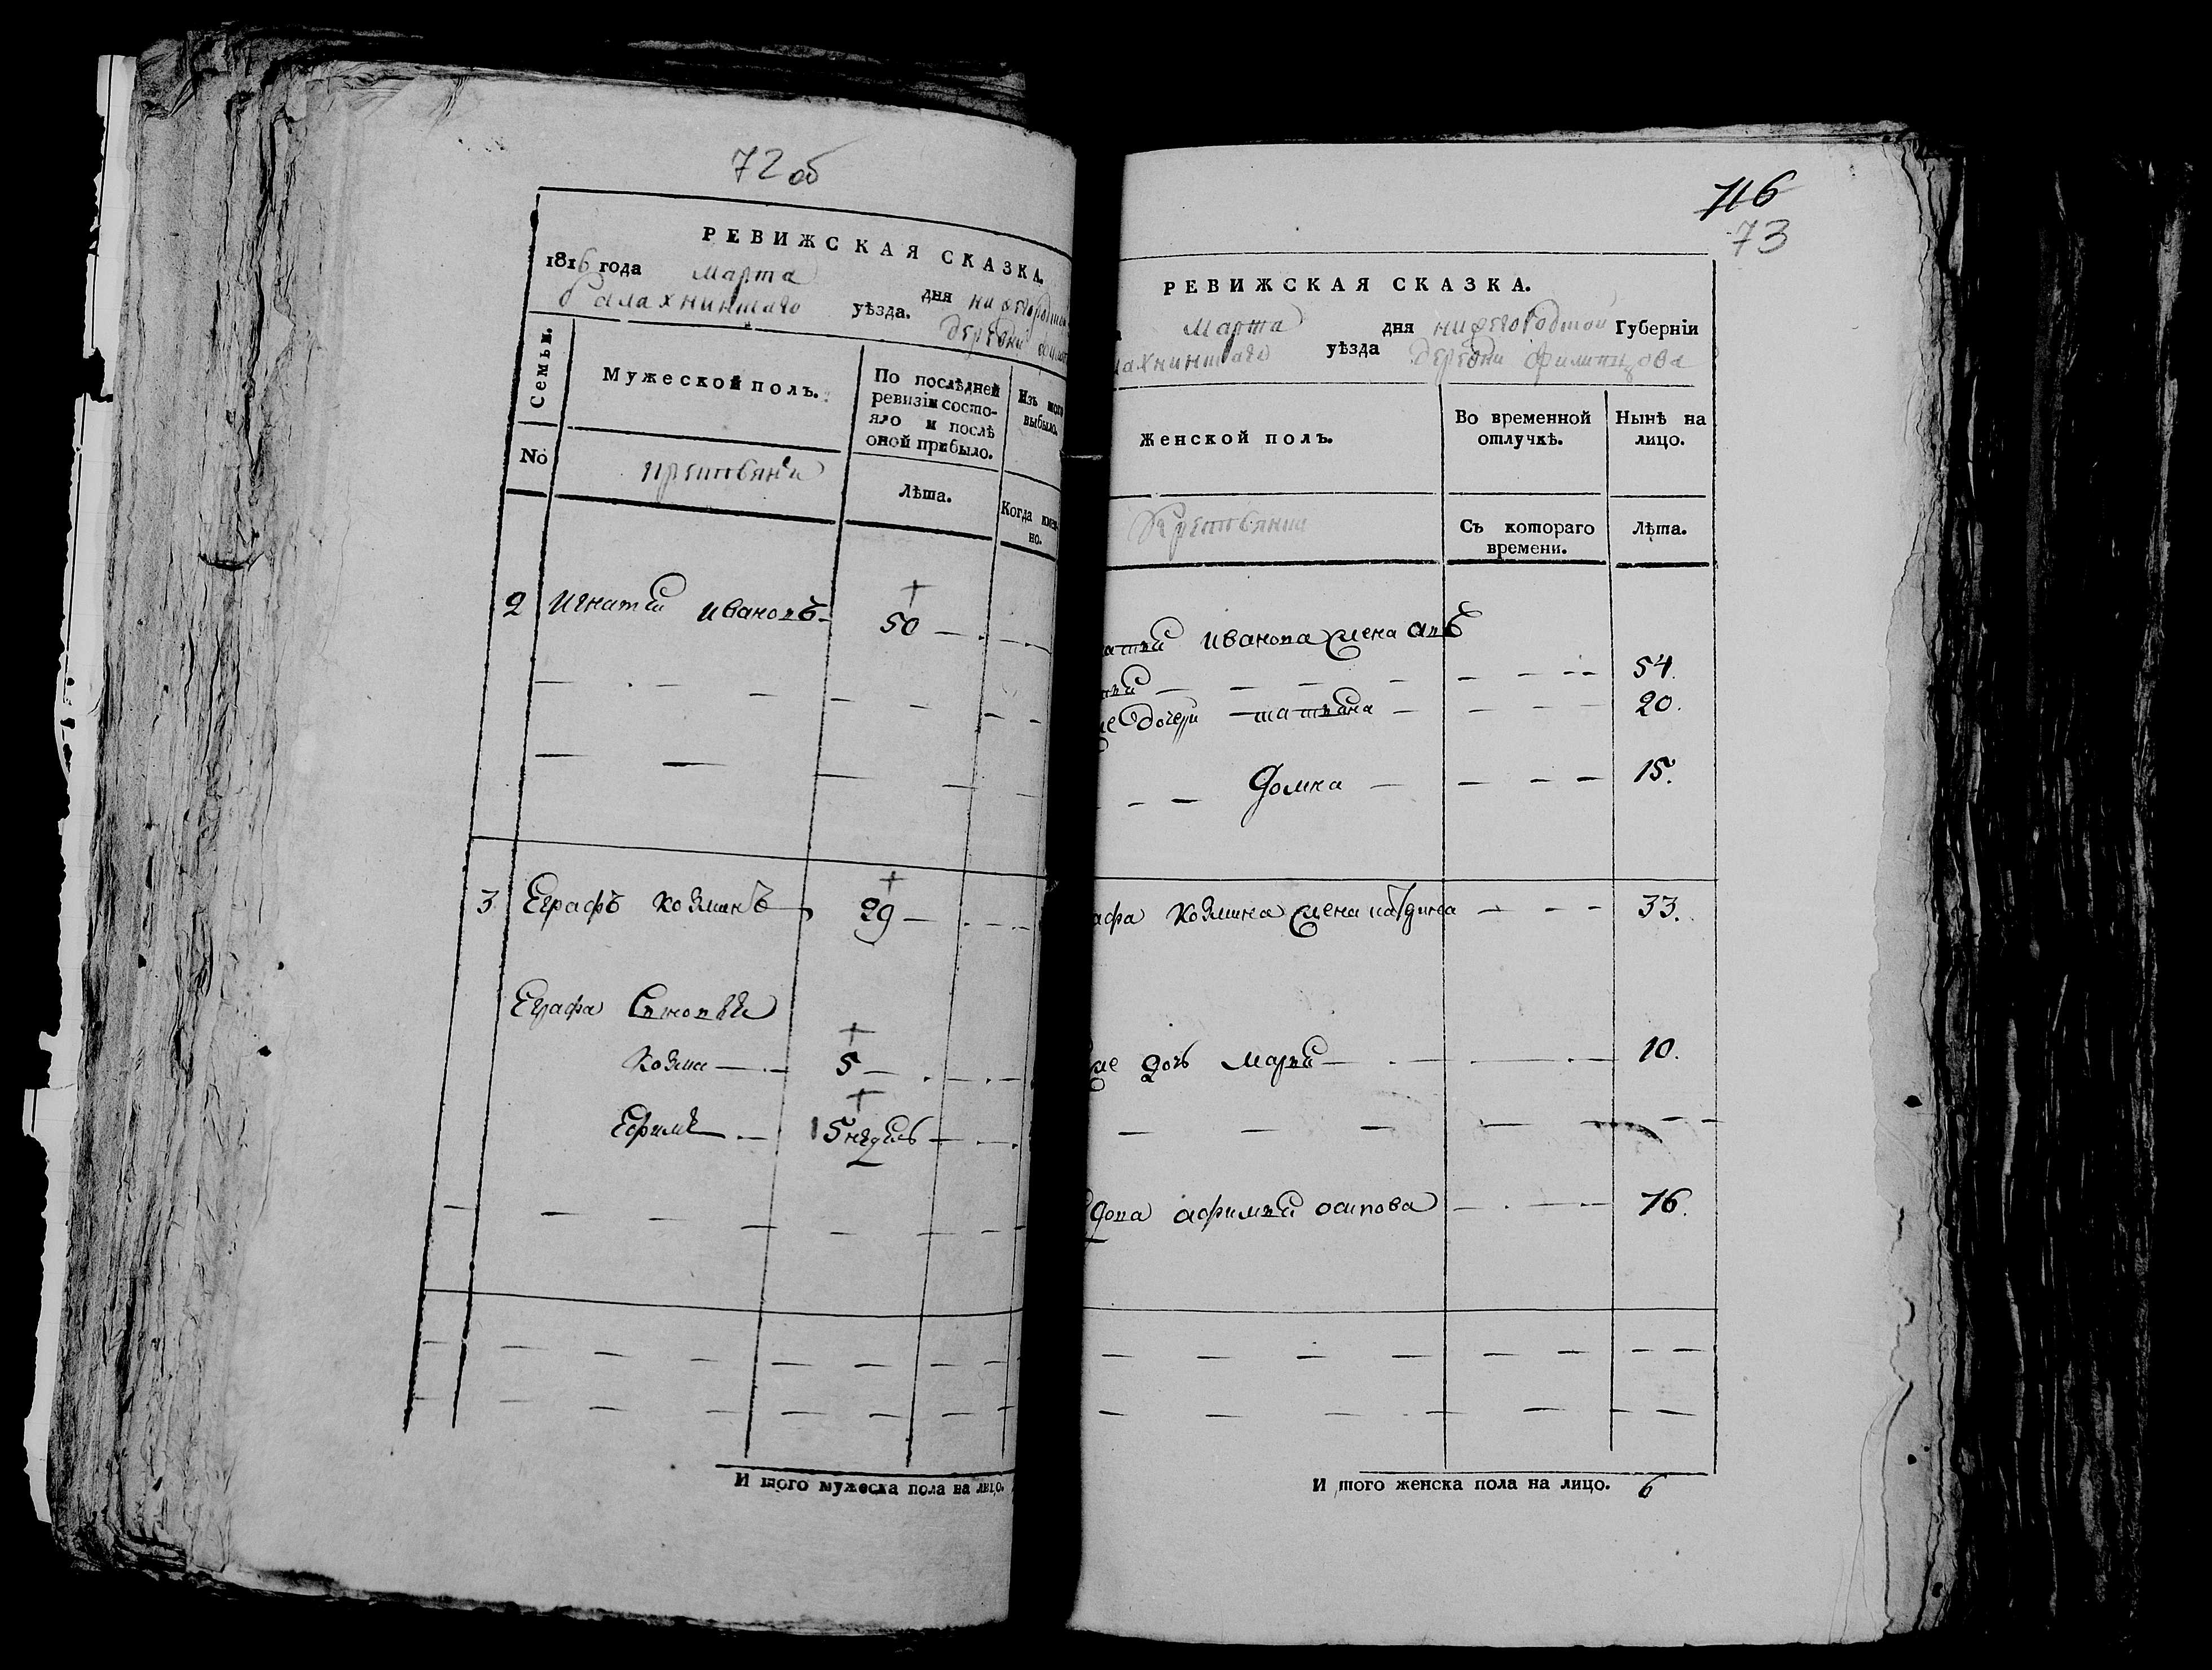 72 об
РЕВИЖСКАЯ СКАЗКА.
1816 года марта дня нижегородской
балахнинскаго уѣзда. деревни
Семьи.
Мужеской полъ.
По послѣдней ревизіи состояло и послѣ оной прибыло.
Изъ того выбыло.
No
крестьяня
Лѣта.
Когда именно.
2 игнатей ивановъ 50
3 Еграфъ козминъ 29
Еграфа сыновья
козма 5
Ефимъ 15 недель
И того мужеска пола на лицо.
116
73
РЕВИЖСКАЯ СКАЗКА.
марта дня нижегородской Губерніи
лахнинскаго уѣзда деревни филипцова
Женской полъ.
Во временной отлучкѣ.
Нынѣ на лицо.
крестьянки
Съ котораго времени.
Лѣта.
иванова жена
54.
дочери татьяна 20.
домна 15.
афа козмина жена 33.
дочь марья 10.
вдова афимья осипова 76.
И того женска пола на лицо. 6